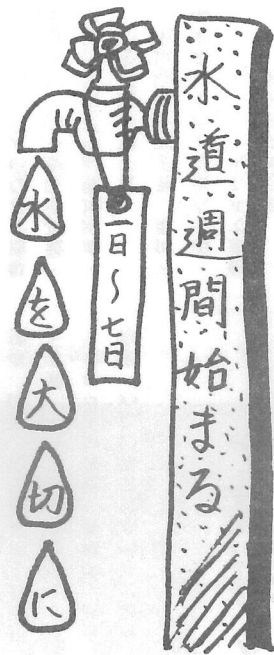 水道週間始まる
一日〜七日
水を大切に